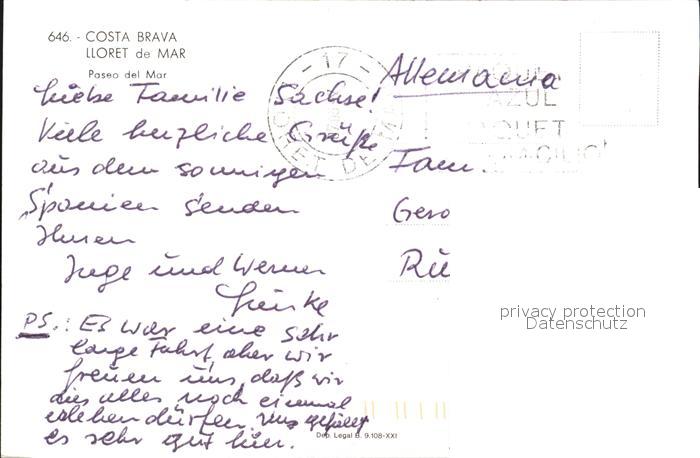 646. - COSTA BRAVA
LLORET de MAR
Paseo del Mar
Liebe Familie Sachse!
Viele herzliche Grüße
aus dem sonnigen
Spanien senden
Ihnen
Inge und Werner
PS.: Es war eine sehr
lange Fahrt, aber wir
freuen uns, daß wir
dies alles noch einmal
erleben dürfen. Uns gefällt
es sehr gut hier.
Allemania
Fam
Gero
Rü
- 17 -
AZUL
privacy protection
Datenschutz
Dep. Legal B. 9.108-XXI